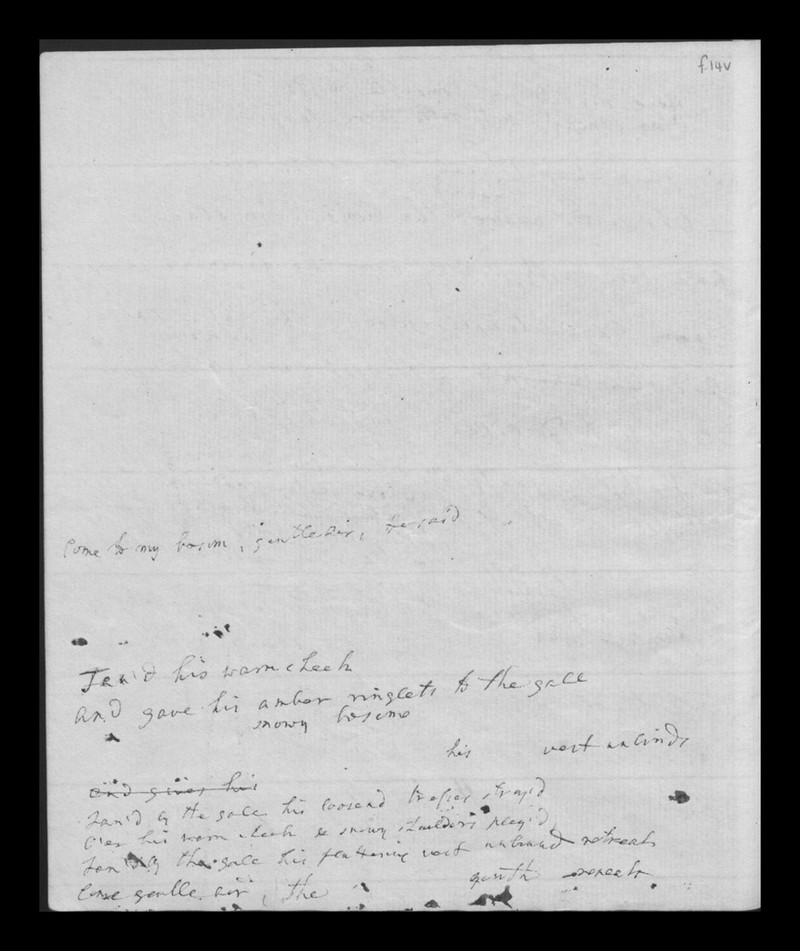 f. 14v
Come to my bosom, gentle air, he said
Fan'd his warm cheek
and gave his amber ringlets to the gale
snowy bosom
his vest unbinds
and gives his
Fan'd by the gale his loosend tresses stray'd
O'er his warm cheek & snowy shoulders play'd
Fan'd by the gale his fluttering vest unbound retreats
Come gentle air, the youth repeats